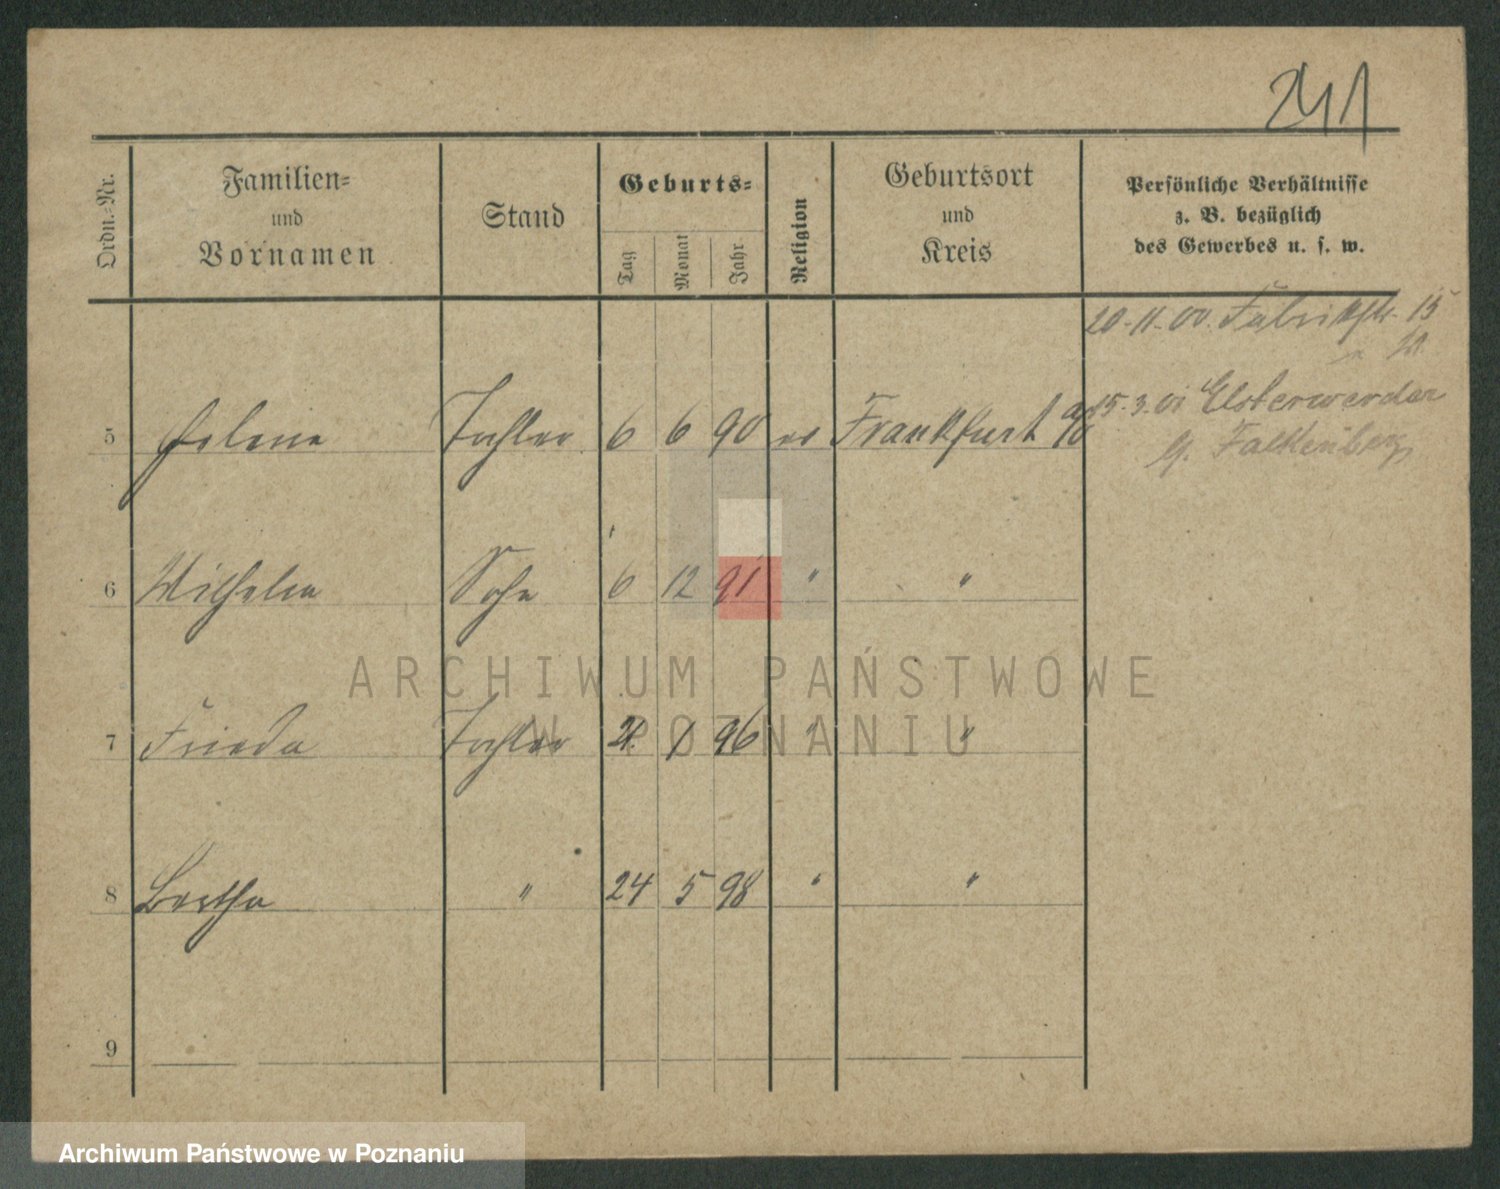 241
Ordn.-Nr.
Familien-
und
Vornamen
Stand
Geburts-
Tag
Monat
Jahr
Religion
Geburtsort
und
Kreis
Persönliche Verhältnisse
z. B. bezüglich
des Gewerbes u. s. w.
20-11-00. Fabrikstr. 15
5 Helene Tochter 6 6 90 ev Frankfurt a/O
15.3.01 Elsterwerdar
Falkenberg
6 Wilhelm Sohn 6 12 91 " "
7 Frieda Tochter 21. 1 96 " "
8 Bertha " 24 5 98 " "
9
ARCHIWUM PAŃSTWOWE
W POZNANIU
Archiwum Państwowe w Poznaniu